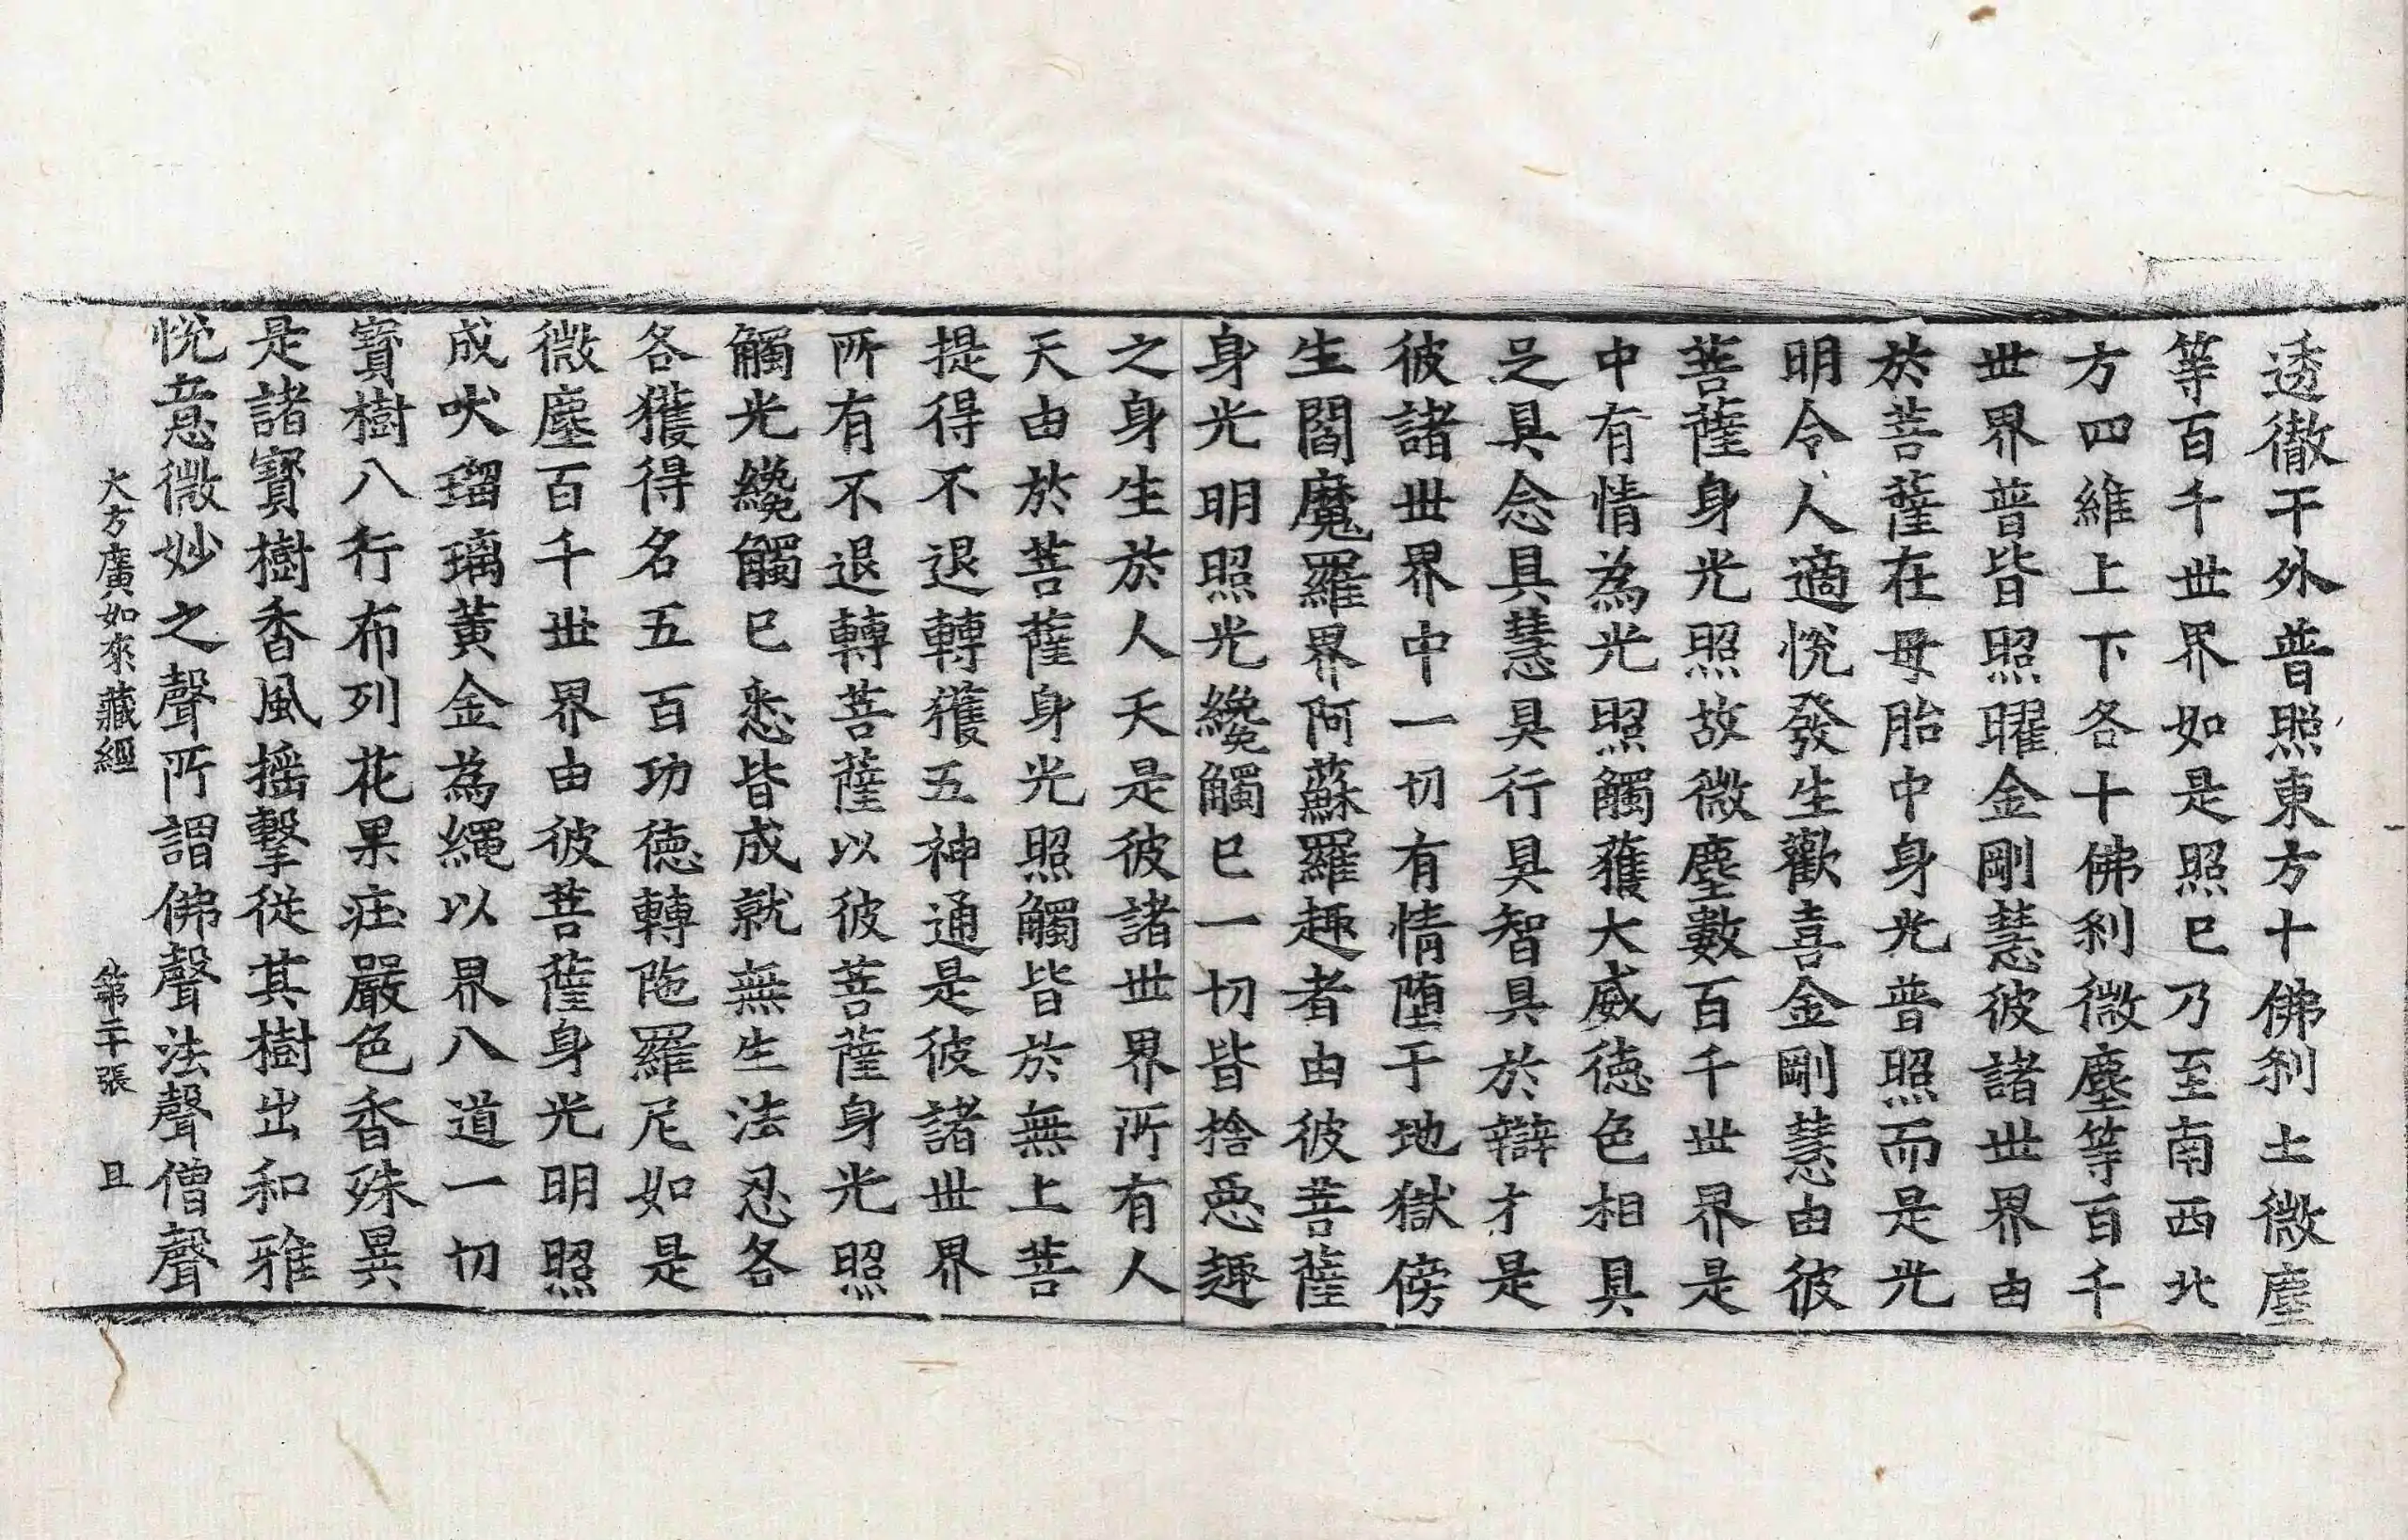 透徹于外普照東方十佛刹土微塵
等百千世界如是照已乃至南西北
方四維上下各十佛刹微塵等百千
世界普皆照曜金剛慧彼諸世界由
於菩薩在母胎中身光普照而是光
明令人適悅發生歡喜金剛慧由彼
菩薩身光照故微塵數百千世界是
中有情為光照觸獲大威徳色相具
足具念具慧具行具智具於辯才是
彼諸世界中一切有情墮于地獄傍
生閻魔羅界阿蘇羅趣者由彼菩薩
身光明照光纔觸已一切皆捨惡趣
之身生於人天是彼諸世界所有人
天由於菩薩身光照觸皆於無上菩
提得不退轉獲五神通是彼諸世界
所有不退轉菩薩以彼菩薩身光照
觸光纔觸已悉皆成就無生法忍各
各獲得名五百功徳轉陁羅尼如是
微塵百千世界由彼菩薩身光明照
成吠瑠璃黃金為繩以界八道一切
寶樹八行布列花果莊嚴色香殊異
是諸寶樹香風搖擊從其樹出和雅
悅意微妙之聲所謂佛聲法聲僧聲
大方廣如來藏經 第二十張 且